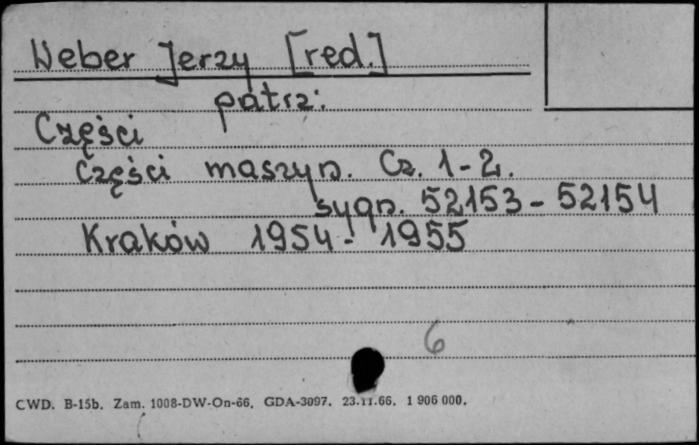 Weber Jerzy [red.]
patrz:
Części
Części maszyn. Cz. 1-2.
sygn. 52153 - 52154
Kraków 1954 - 1955
6
CWD. B-15b. Zam. 1008-DW-On-66. GDA-3097. 23.11.66. 1 906 000.